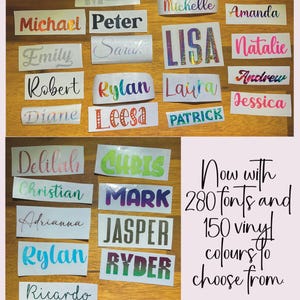 Michelle
Amanda
Michael
Peter
LISA
Natalie
Emily
Sarah
Andrew
Robert
Rylan
Laura
Jessica
Diane
Leesa
PATRICK
Delilah
CHRIS
Christian
MARK
Adrianna
JASPER
Rylan
RYDER
Ricardo
Now with
280 fonts and
150 vinyl
colours to
choose from